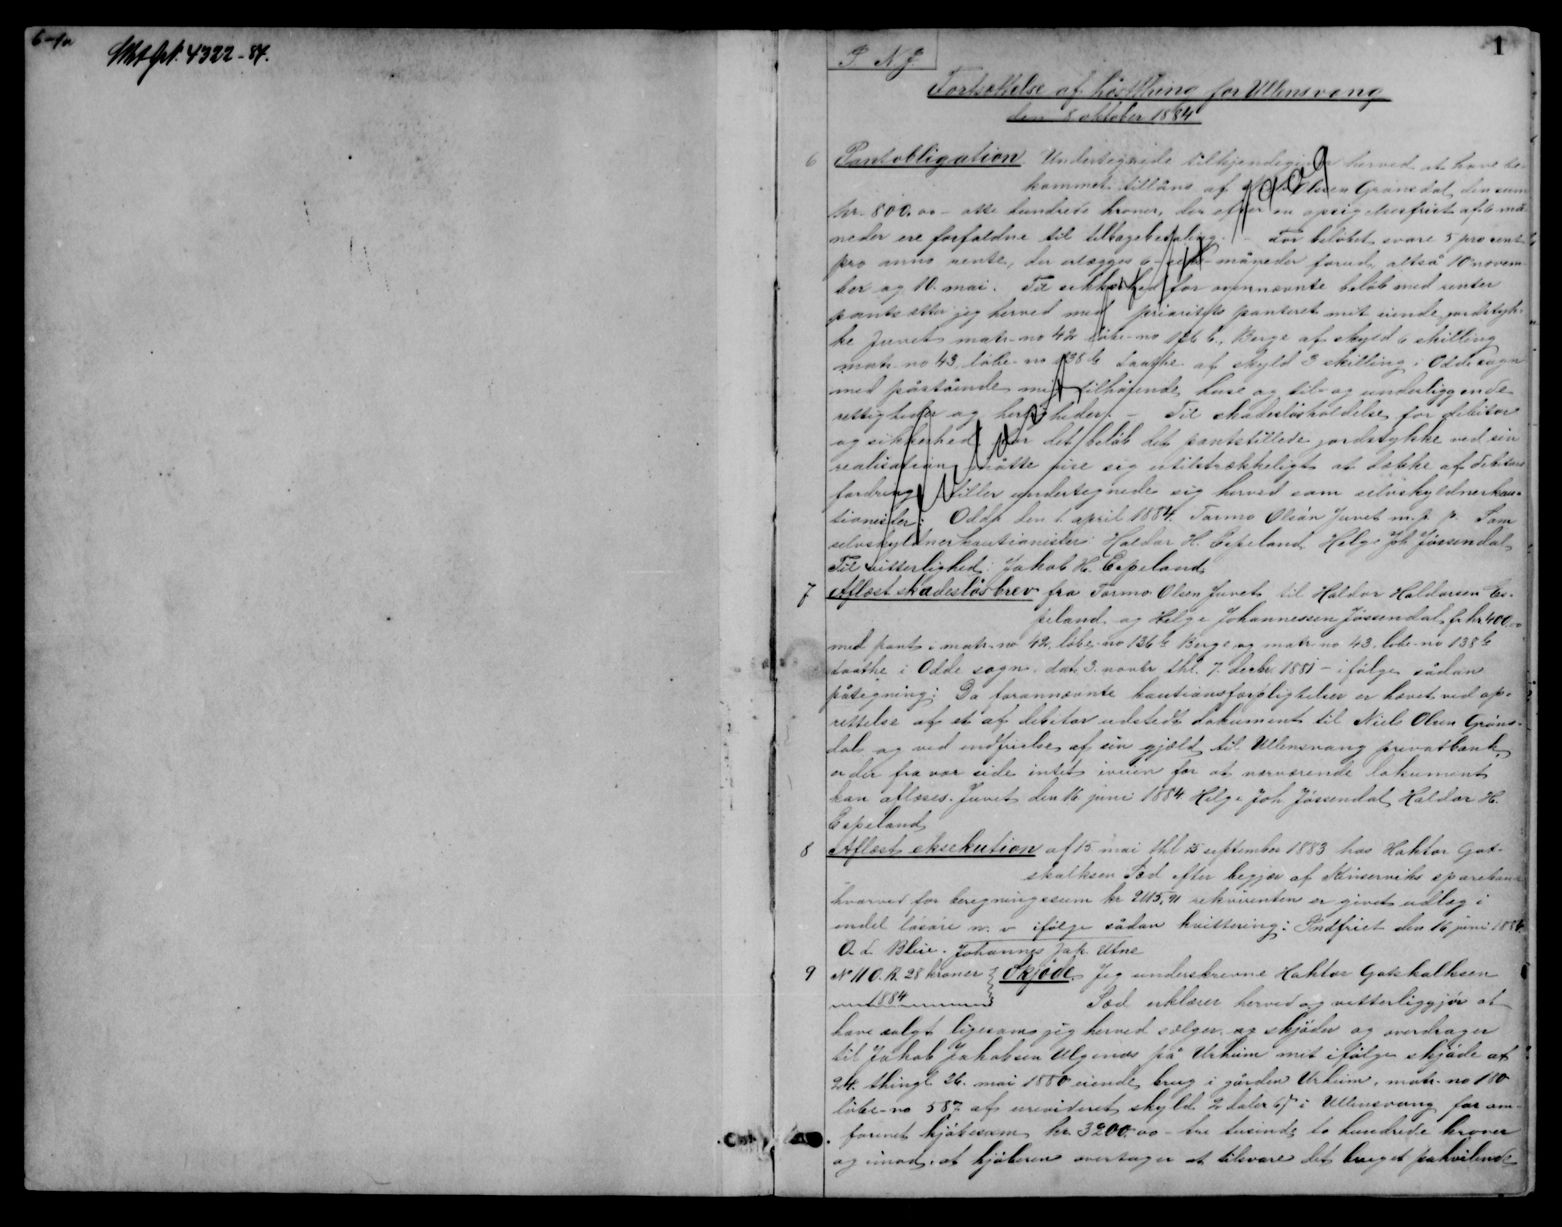 4322-84.
1
P N J.
Fortsættelse af høstthing for Ullensvang
den 8 oktober 1884
6 Pantobligation Undertegnede tilkjendegiver herved at have be-
kommet tillåns af Olsen Grönsdal den sum
kr. 800.00 - otte hundrede kroner, der efter en opsigelsesfrist af 6 må-
neder ere forfaldne til tilbagebetaling. - For beløbet svare 5 procent
pro anno rente, der erlægges 6 - måneder forud, altså 10 novem-
ber og 10. mai. Til sikkerhed for ovennævnte beløb med renter
pantsætter jeg herved med prioritets panteret mit eiende jordstyk-
ke Juvet matr-no 42 løbe-no 136 b, Berge af skyld 6 skilling
matr-no 43, løbe-no 138 b af skyld 3 skilling i Odde sogn
med påstående mig tilhørende huse og til- og underliggende
rettigheder og herligheder. - Til skadesløsholdelse for debitor
og sikkerhed for det beløb det pantstillede jordstykke ved sin
realisation måtte vise sig utilstrækkeligt at dække af debitors
fordring stiller undertegnede sig herved som selvskyldnerkau-
tionister: Odde den 1. april 1884. Tormo Olsen Juvet m.p.p. Som
selvskyldnerkautionister Haldor H. Espeland Helge Joh Jössendal
Til vitterlighed: Jakob H. Espeland
7 Aflæst skadesløsbrev fra Tormo Olsen Juvet til Haldor Haldorsen Es-
peland og Helge Johannessen Jössendal for kr 400,00
med pant i matr-no 42, løbe-no 136 b Berge og matr no 43. løbe-no 138 b
i Odde sogn. dat. 3. novbr thl. 7. decbr 1881 - ifølge sådan
påtegning: Da forannævnte kautionsforpligtelser er hævet ved op-
rettelse af et af debitor udstedt dokument til Niels Olsen Gröns-
dal og ved indfrielse af sin gjæld til Ullensvang privatbank,
er der fra vor side intet iveien for at nærværende dokument
kan aflæses. Juvet den 16 juni 1884 Helge Joh Jössendal Haldor H.
Espeland
8 Aflæst eksekution af 15 mai thl 25 september 1883 hos Haktor Got-
skalksen Sæd efter begjær af Kinserviks sparebank
hvorved for beregningssum kr 2115,91 rekvirenten er givet udlæg i
endel løsøre m. v. ifølge sådan kvittering: Indfriet den 16 juni 1884
O. d. Bleie. Johannes Jak. Utne
9 No 11 O. R. 28 kroner Skjøde Jeg underskrevne Haktor Gotskalksen
1884 Sæd erklærer herved og vitterliggjør at
have solgt ligesom jeg herved sælger, og skjøder og overdrager
til Jakob Jakobsen Ulgenæs på Urheim mit ifølge skjøde af
24. thingl 26. mai 1880 eiende brug i gården Urheim, matr-no 110
løbe-no 587 af urevideret skyld 2 daler i Ullensvang for om-
forenet kjøbesum kr. 3200.00 - tre tusinde to hundrede kroner
og imod, at kjøberen overtager at tilsvare det bruget påhvilende
Indfriet
1909